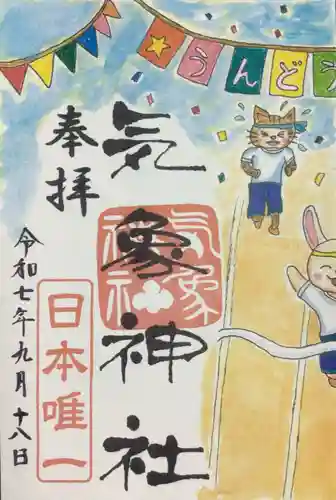 うんどう
奉拝
気象神社
気象神社
日本唯一
令和七年九月十八日